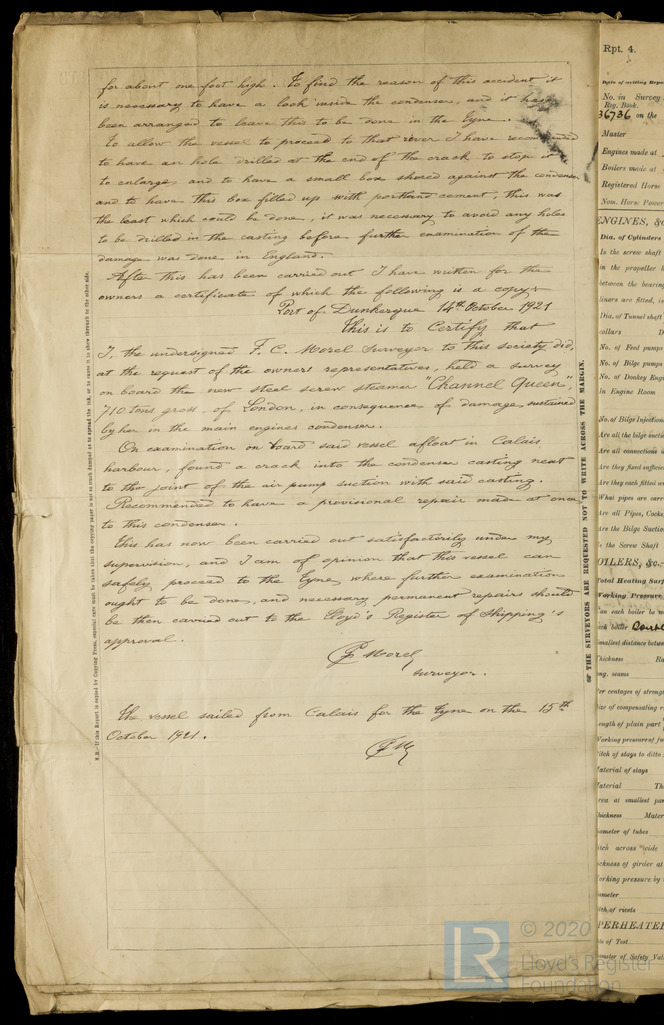 for about one foot high. To find the reason of this accident it
is necessary to have a look inside the condenser, and it has
been arranged to leave this to be done in the Tyne.
To allow the vessel to proceed to that river I have recommended
to have an hole drilled at the end of the crack to stop it
to enlarge, and to have a small box shored against the condenser
and to have this box filled up with portland cement, this was
the least which could be done, it was necessary to avoid any holes
to be drilled in the casting before further examination of the
damage was done in England.
After this has been carried out I have written for the
owners a certificate of which the following is a copy
Port of Dunkerque 14th October 1921
This is to Certify that
I, the undersigned F. C. Morel Surveyor to this society did,
at the request of the owners' representatives, held a survey
on board the new steel screw steamer "Channel Queen",
710 tons gross, of London, in consequence of damage sustained
by her in the main engines condenser.
On examination on board said vessel afloat in Calais
harbour, found a crack into the condenser casting next
to the joint of the air pump suction with said casting.
Recommended to have a provisional repair made at once
to this condenser.
This has now been carried out satisfactorily under my
supervision, and I am of opinion that this vessel can
safely proceed to the Tyne where further examination
ought to be done, and necessary permanent repairs should
be then carried out to the Lloyd's Register of Shipping's
approval.
Morel
Surveyor.
The vessel sailed from Calais for the Tyne on the 15th
October 1921.
N.B.—If this Report is copied by Copying Press, especial care must be taken that the copying paper is not so much damped as to spread the ink, or to cause it to show through to the other side.
OF THE SURVEYORS ARE REQUESTED NOT TO WRITE ACROSS THE MARGIN.
Rpt. 4.
Date of writing Repo
No. in Survey
Reg. Book.
36736 on the
Master
Engines made at
Boilers made at
Registered Horse
Nom. Horse Power
ENGINES, &c
Dia. of Cylinders
Is the screw shaft
in the propeller
between the bearing
liners are fitted, is
Dia. of Tunnel shaft
collars D
No. of Feed pumps
No. of Bilge pumps
No. of Donkey Engi
in Engine Room
No. of Bilge Injection
Are all the bilge suction
Are all connections
Are they fixed sufficien
Are they each fitted w
What pipes are carr
Are all Pipes, Cocks
Are the Bilge Suctio
Is the Screw Shaft
OILERS, &c.
Total Heating Surf
Working Pressure
Can each boiler be w
each boiler Doubl
smallest distance betwe
Thickness Ra
ong. seams
Per centages of streng
Size of compensating r
Length of plain part
Working pressure of fu
Pitch of stays to ditto
Material of stays
Material Th
rea at smallest pa
hickness Mater
iameter of tubes
itch across wide
ckness of girder at
orking pressure by
ameter
itch of rivets
PERHEATE
te of Test
ameter of Safety Val
LR
© 2020
Lloyd's Register
Foundation